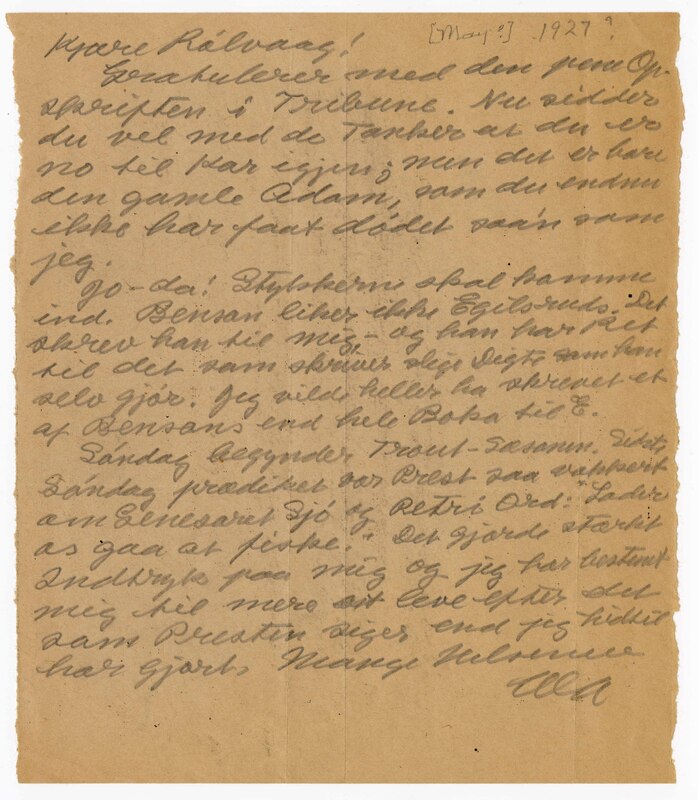 [May?] 1927?
Kjære Rölvaag!
Gratulerer med den pene Op-
skriften i Tribune. Nu sidder
du vel med de Tanker at du er
no til Kar igjen; men det er bare
den gamle Adam, som du endnu
ikke har faat dödet saa'n som
jeg.
Jo-da! Stykkerne skal komme
ind. Benson liker ikke Egilsruds. Det
skrev han til mig, – og han har Ret
til det som skriver slige Digte som han
selv gjör. Jeg vilde heller ha skrevet et
af Bensons end hele Boka til E.
Söndag begynder Trout-Sæsonen. Sidste
Söndag prædiket vor Prest saa vakkert
om Genesaret Sjö og Petri Ord: "Lader
os gaa at fiske." Det gjorde stærkt
Indtryk paa mig og jeg har bestemt
mig til mere at leve efter det
som Presten siger end jeg hidtil
har gjort. Mange Hilsener